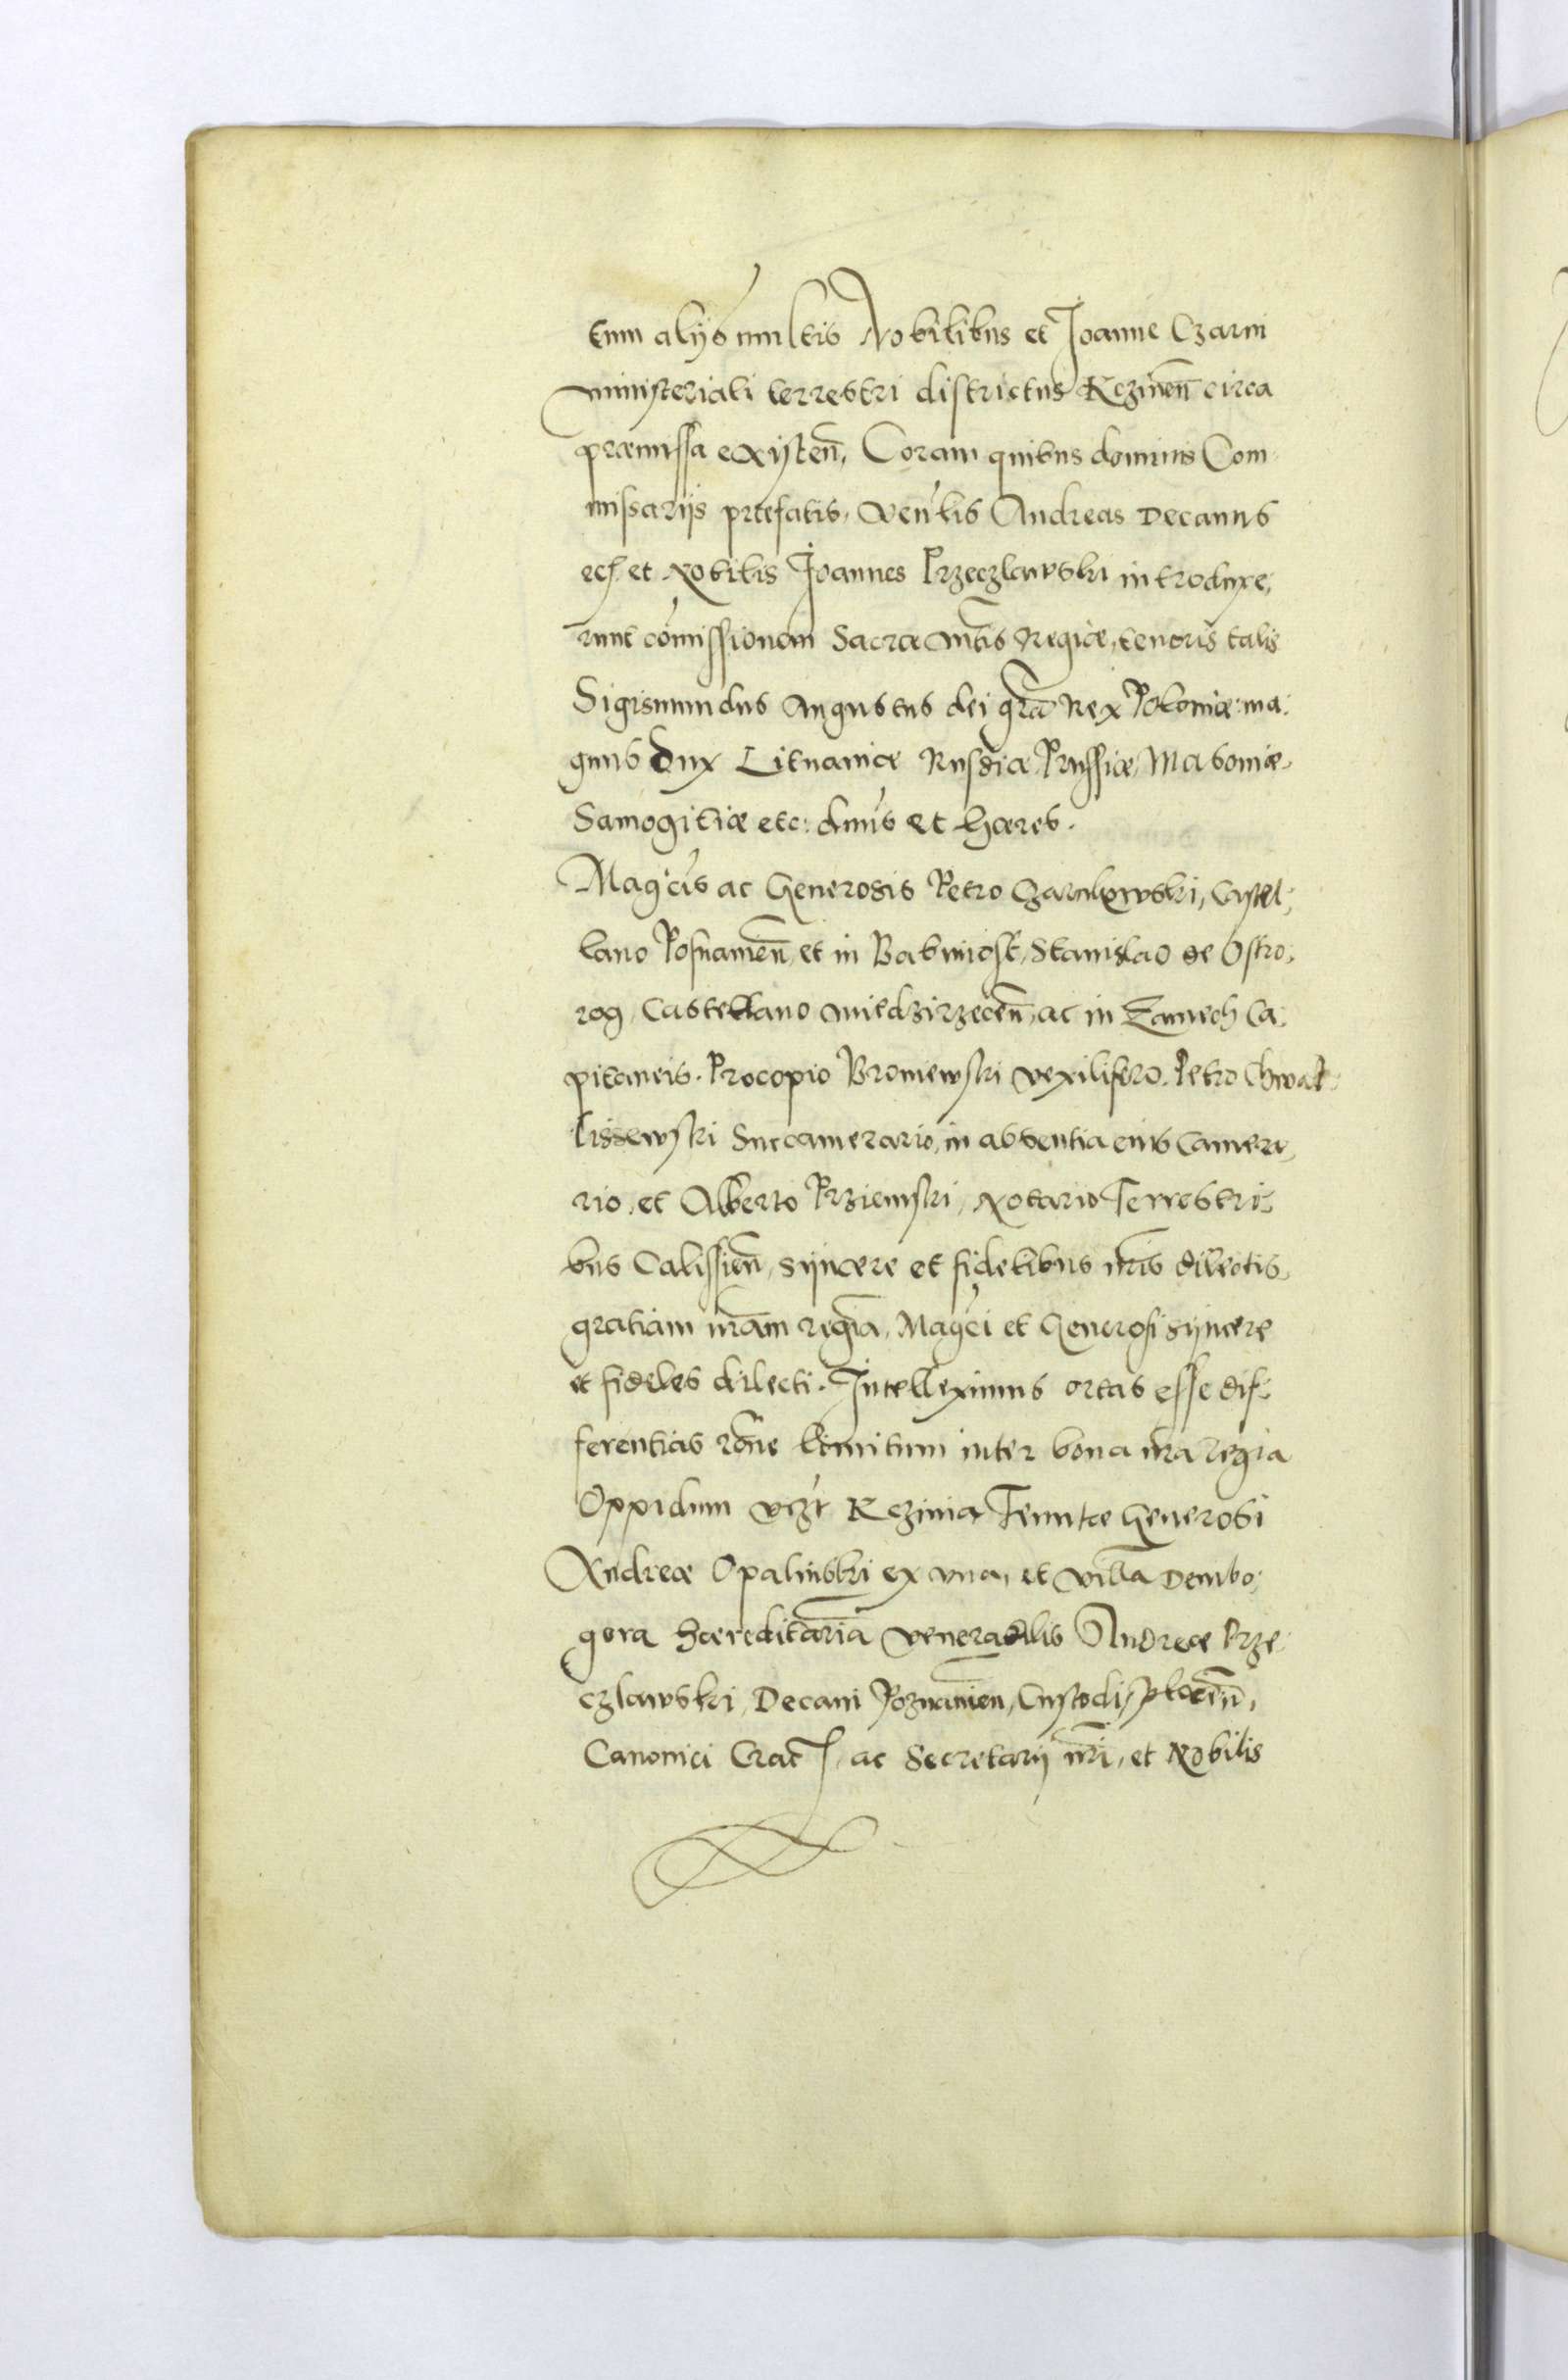 cum alijs multis Nobilibus et Joanne Czarni
ministeriali terrestri districtus Kczinen̄ circa
præmissa existen̄, Coram quibus dominis Com
missarijs præfatis, Ven'lis Andreas Decanus
et Nobilis Joannes Przeczlawski introduxe,
runt comissionem Sacræ M̄tis Regiæ, tenoris talis
Sigismundus Augustus dei gr̄a Rex Poloniæ: ma:
gnus Dux Lituaniæ Russiæ, Prussiæ, Masoviæ,
Samogitiæ etc: dn̄us et hæres.
Mag'cis ac Generosis Petro Czarnkowski, Castel:
lano Posnanien̄, et in Babimost, Stanislao de Ostro:
rog, Castellano Miedzirzecen̄, ac in Ca:
pitaneis. Procopio Broniewski vexilifero. Petro Chwal
lissewski Succamerario, in absentia eius Camera,
rio, et Alberto Prziemski, Notario Terrestri:
bus Calissien̄, syncere et fidelibus nr̄is dilectis,
gratiam nr̄am regia, Mag'ci et Generosi syncere
et fideles dilecti. Intelleximus ortas esse dif:
ferentias rōne limitum inter bona nr̄a regia
Oppidum vczt Kczinia Tenutæ Generosi
Andreæ Opalinski ex una, et villā Dembo:
gora hæreditariā venerabilis Andreæ Prze:
czlawski, Decani Poznanien̄, Custodi, plocen̄,
Canonici Crac, ac Secretarij nr̄i, et Nobilis